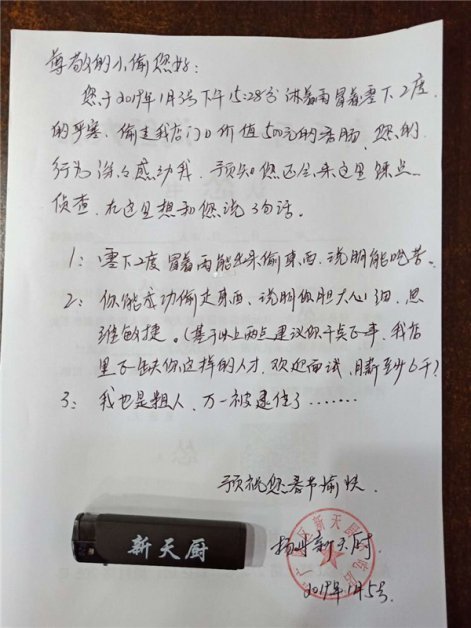 尊敬的小偷您好:
您于2019年1月3号下午15:28分淋着雨冒着零下2度
的严寒、偷走我店门口价值500元的香肠、您的
行为深深感动我、预知您还会来这里踩点
侦查、在这里想和您说3句话。
1: 零下2度冒着雨能出来偷东西、说明能吃苦。
2: 你能成功偷走东西、说明你胆大心细、思
维敏捷。(基于以上两点建议你干点正事、我店
里正缺你这样的人才、欢迎面试、月薪至少6千?
3: 我也是粗人、万一被逮住了.......
预祝您春节愉快.
新天厨
扬州新天厨.
2019年1月5号.